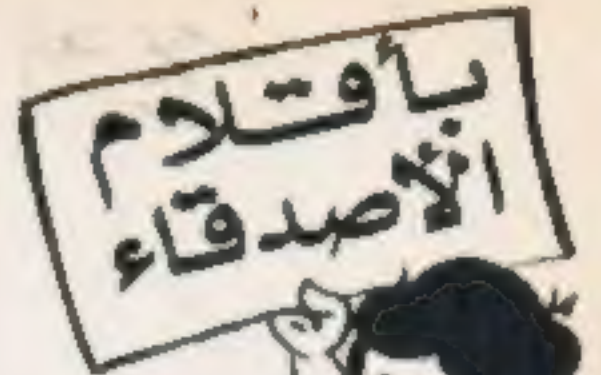 بأقلام
الأصدقاء